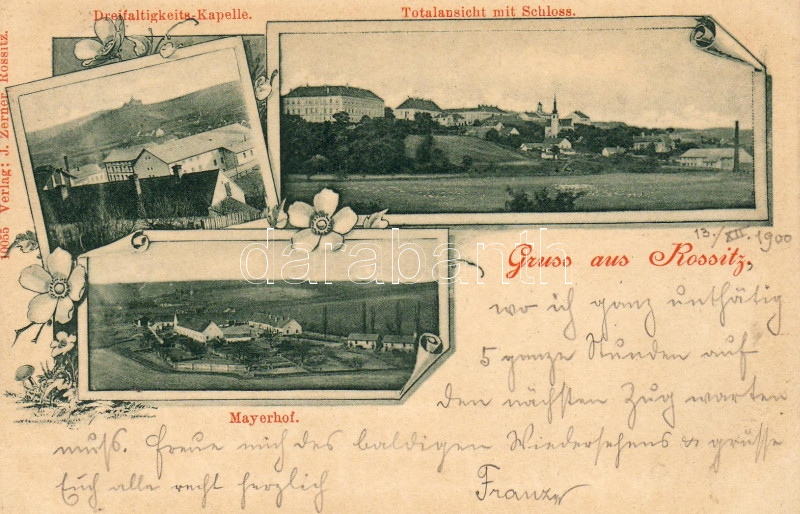 Dreifaltigkeits-Kapelle.
Totalansicht mit Schloss.
10055 Verlag; J. Zerner, Rossitz.
darabanth
13./XII. 1900
Gruss aus Rossitz,
wo ich ganz unthätig
5 ganze Stunden auf
den nächsten Zug warten
Mayerhof.
muß. Freue mich des baldigen Wiedersehens & grüsse
Euch alle recht herzlich
Franz